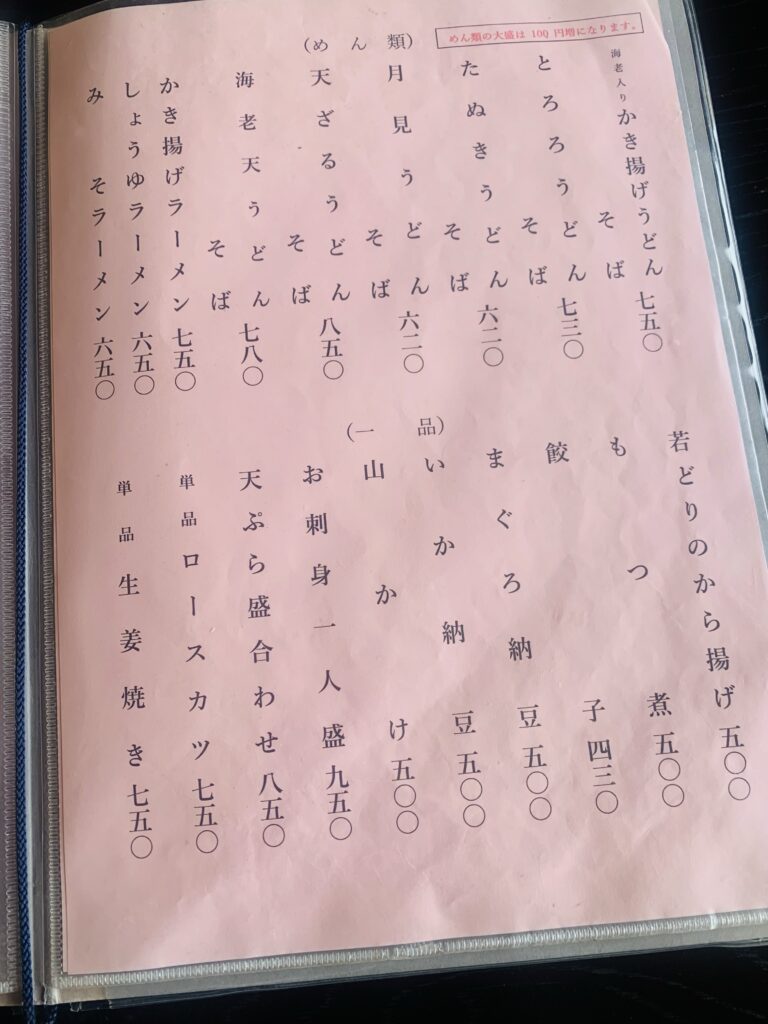 めん類の大盛は100円増になります。
(めん類)
海老入りかき揚げうどん そば 七五〇
とろろうどん そば 七三〇
たぬきうどん そば 六二〇
月見うどん そば 六二〇
天ざるうどん そば 八五〇
海老天うどん そば 七八〇
かき揚げラーメン 七五〇
しょうゆラーメン 六五〇
みそラーメン 六五〇
(一品)
若どりのから揚げ 五〇〇
もつ煮 五〇〇
餃子 四三〇
まぐろ納豆 五〇〇
いか納豆 五〇〇
山かけ 五〇〇
お刺身一人盛 九五〇
天ぷら盛合わせ 八五〇
単品ロースカツ 七五〇
単品生姜焼き 七五〇